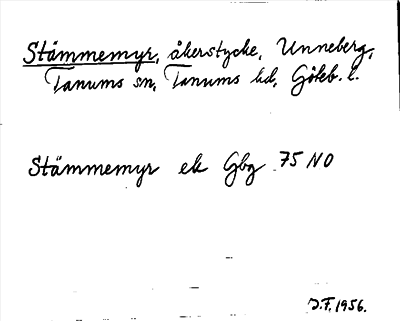 Stämmemyr, åkerstycke, Unneberg,
Tanums sn, Tanums hd, Göteb. l.
Stämmemyr ek Gbg 75 NO
J.F. 1956.